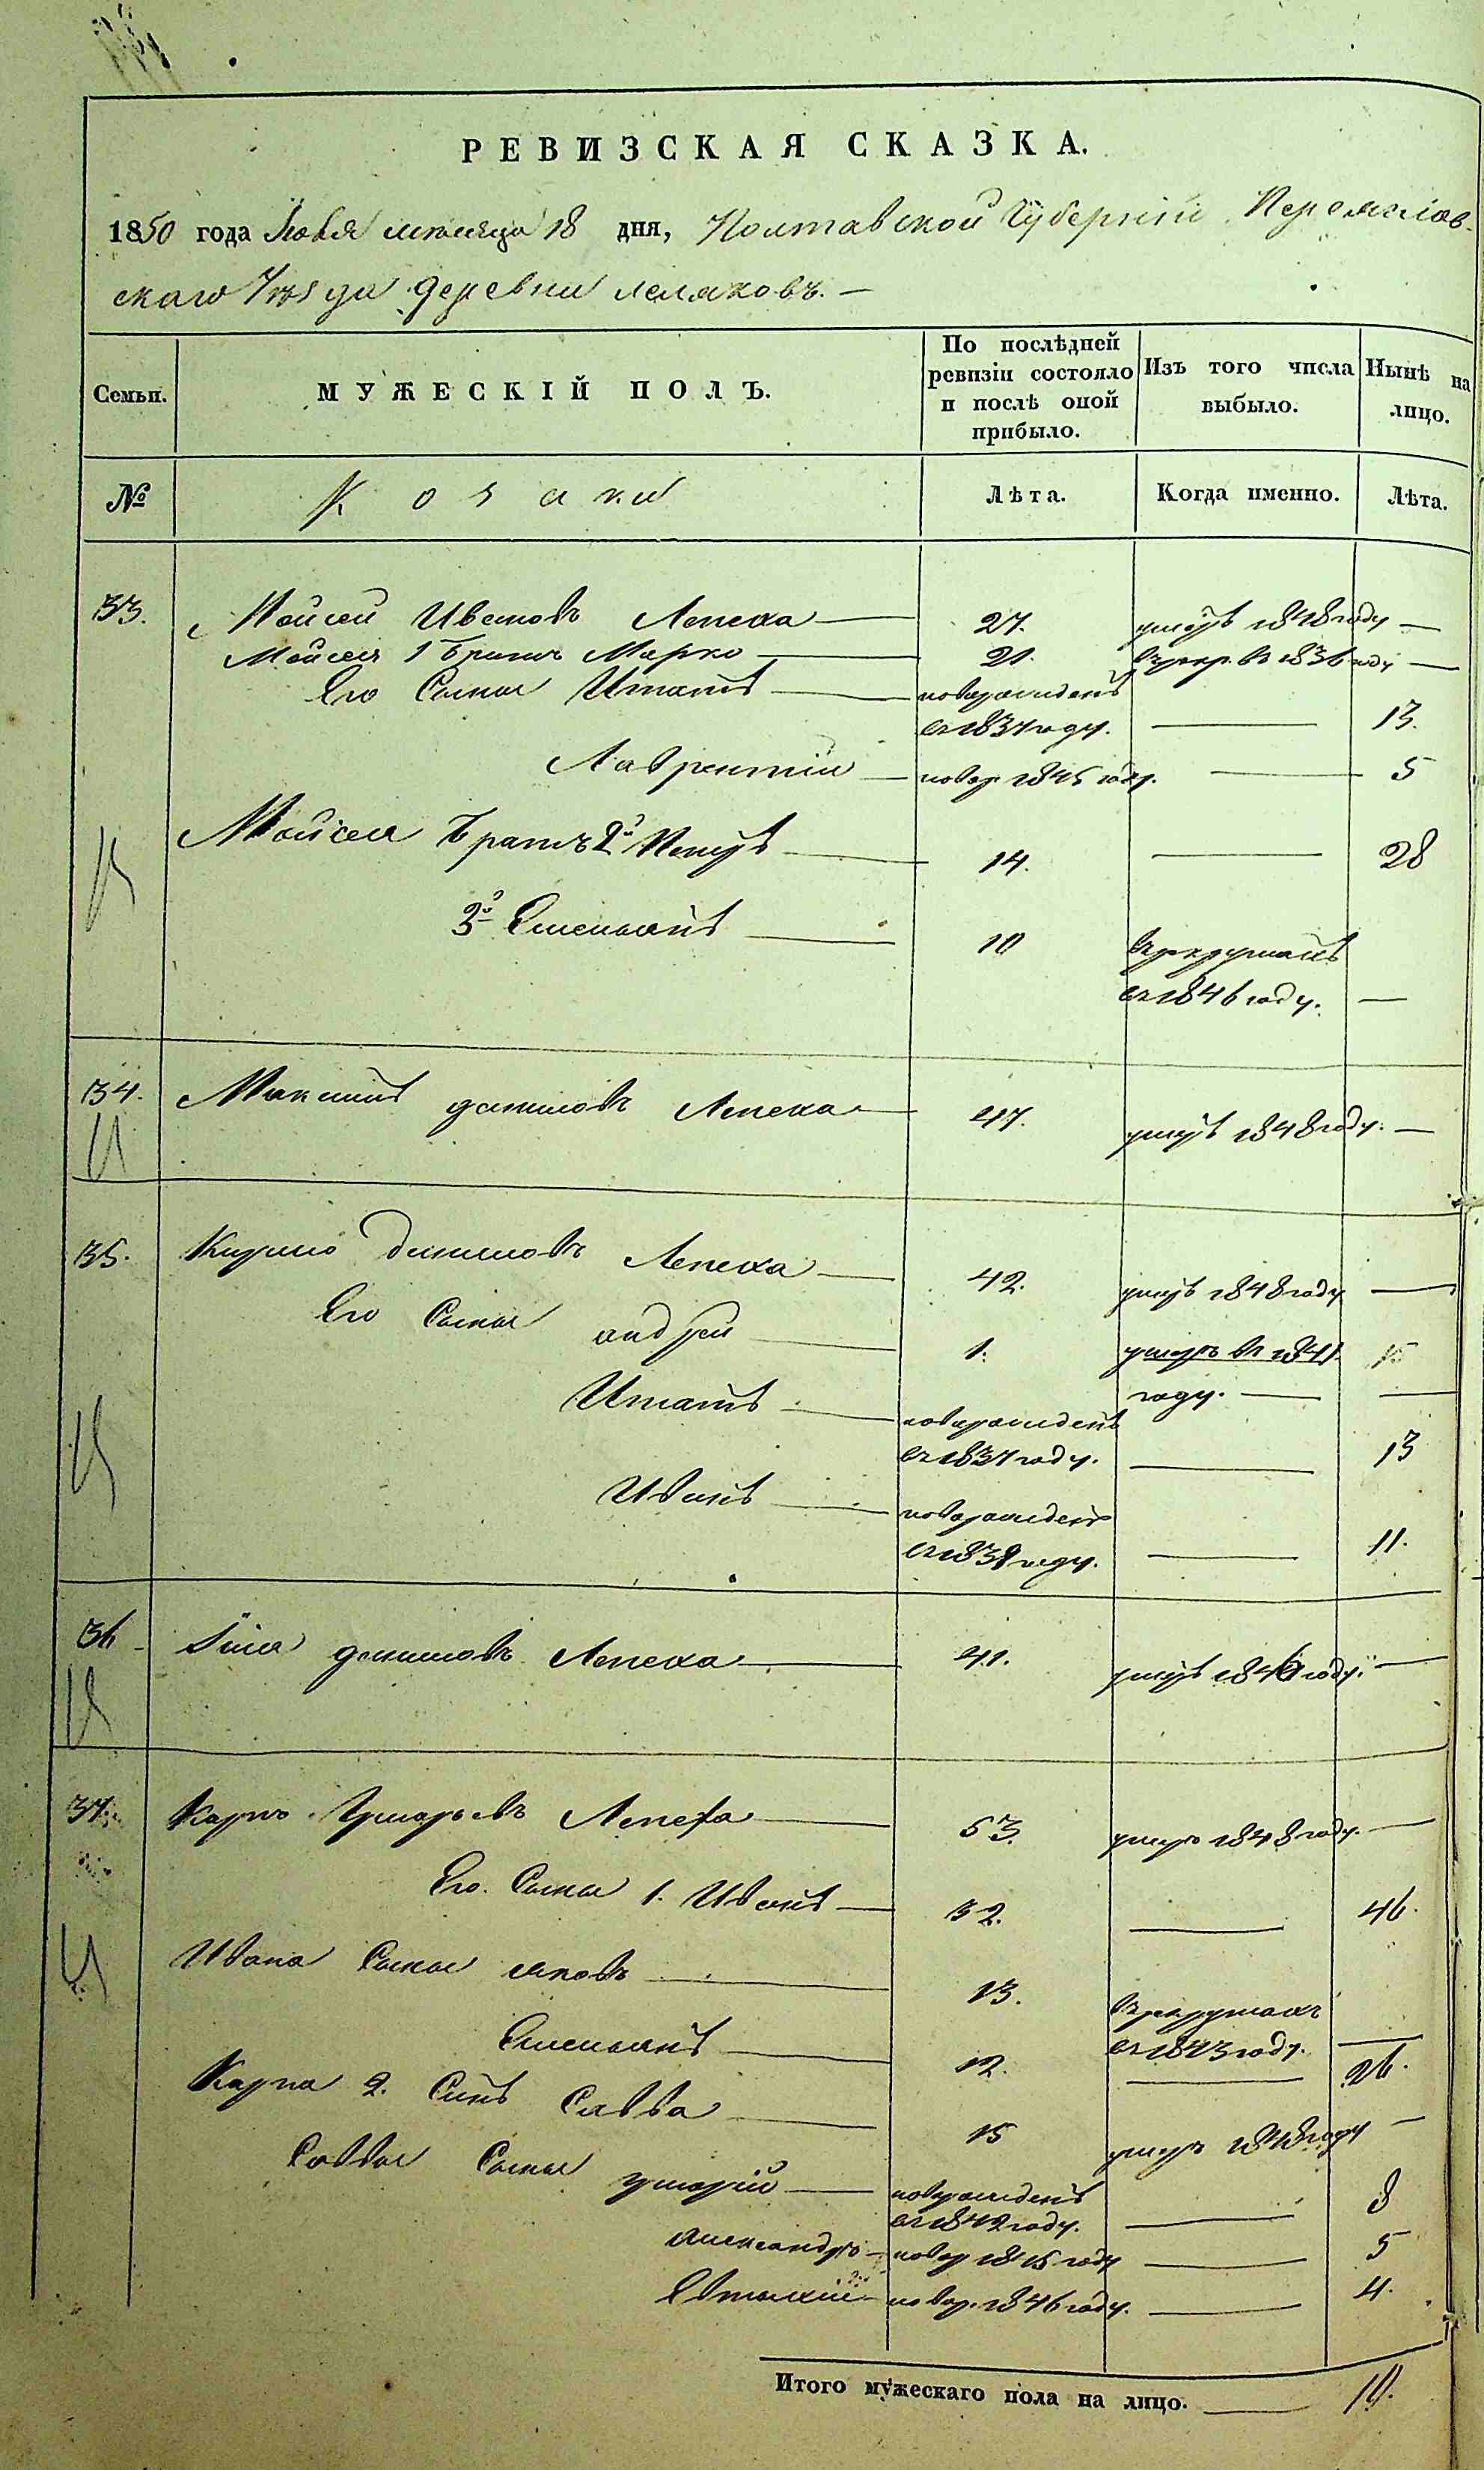 РЕВИЗСКАЯ СКАЗКА.
1850 года мѣсяца 18 дня, Полтавской Губерніи Переяслов-
скаго Уѣзда деревни Леляковъ. —
Семьи. МУЖЕСКІЙ ПОЛЪ. По послѣдней ревизіи состояло и послѣ оной прибыло. Изъ того числа выбыло. Нынѣ на лицо.
№ Козаки Лѣта. Когда именно. Лѣта.
33. Мойсей Ивановъ Лепеха — 27. умеръ 1848 году —
Мойсея 1 Братъ Марко — 21. въ рекр. въ 1836 году —
Его Сыны Игнатъ — новорожденъ
въ 1837 году. — 13.
Лаврентій — новор 1845 году. — 5
Мойсея Братъ 2й Петръ — 14. — 28
3й Емельянъ — 10 въ рекрутахъ
въ 1846 году. —
34. Максимъ даниловъ Лепеха — 47. умеръ 1848 году. —
35. Кирило даниловъ Лепеха — 42. умеръ 1848 году —
Его Сыны андрей — 1. умеръ въ 1841. 15
году. — —
Игнатъ — новорожденъ
въ 1837 году. — 13
Иванъ — новорожденъ
въ 1839 году. — 11.
36 даниловъ Лепеха — 41. умеръ 1846 году. —
37. Карпо Григорьевъ Лепеха — 53. умеръ 1848 году. —
Его Сыны 1. Иванъ — 32. — 46.
Ивана Сыны яковъ — 13. въ рекрутахъ
въ 1843 году. —
Емельянъ — 12. — 26.
Карпа 2. Синъ Савва — 15 умеръ 1848 году —
Саввы Сыны григорій — новорожденъ
въ 1842 году. — 8
александръ — новор 1845 году — 5
Евтихій — новор. 1846 году. — 4.
Итого мужескаго пола на лицо. — 10.